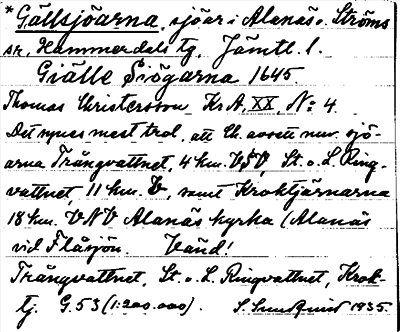 *Gällsjöarna, sjöar i Alanäs o. Ströms
sr, Hammerdals tg, Jämtl. l.
Giälle Siögarna 1645.
Thomas Christersson KrA, XX, No 4.
Det synes mest trol. att Ch. avsett nuv. sjö-
arna Trångvattnet, 4 km. VSV, St. o. L. Ring-
vattnet, 11 km. V, samt Kroktjärnarna
18 km. VNV Alanäs kyrka (Alanäs
vid Flåsjön. Vänd!
Trångvattnet, St. o. L. Ringvattnet, Krok-
tj. G. 53 (1:200.000). S. Sundquist 1935.